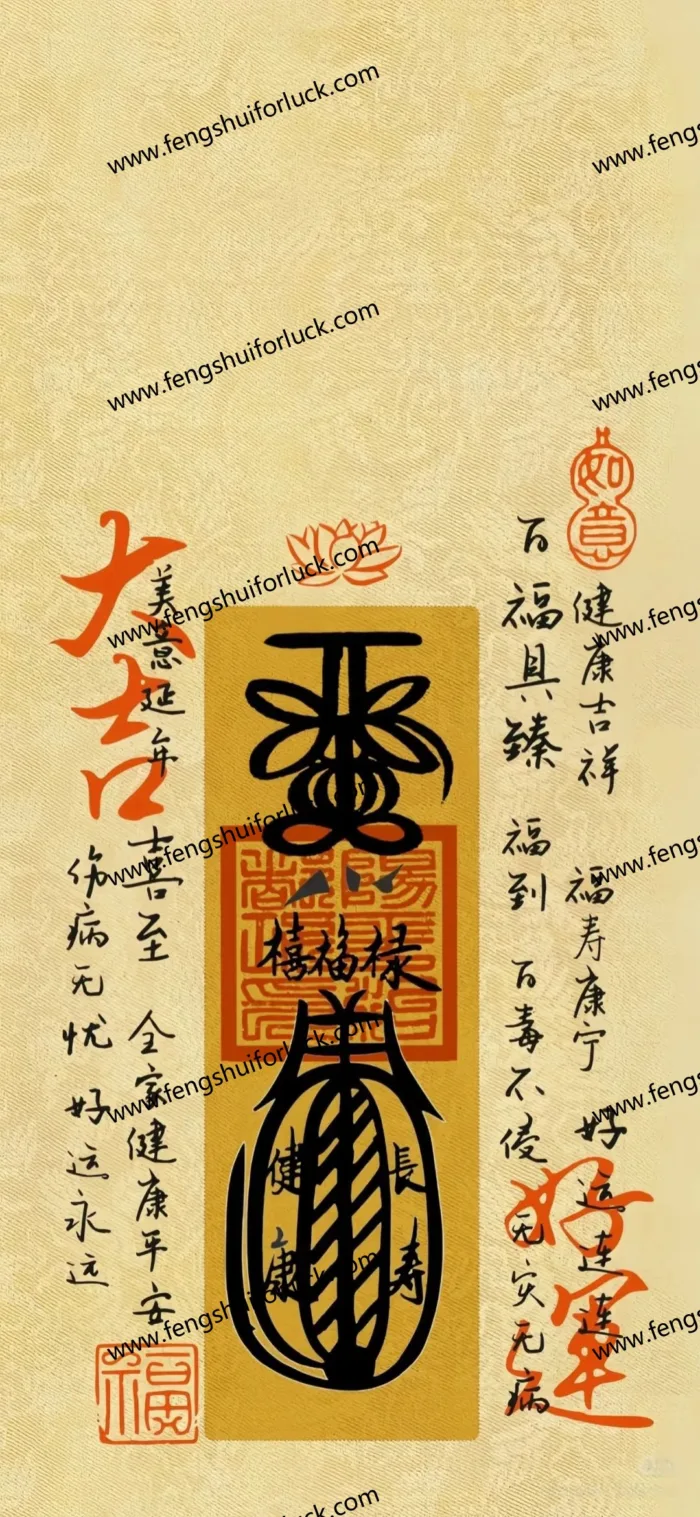 www.fengshuiforluck.com
www.fengs
www.fengshuiforluck.com
www.fengs
如意
健康吉祥 福寿康宁 好运连连
百福具臻 福到 百毒不侵 无灾无病
好運
www.fengshuiforluck.com
www.fengs
禧福禄
健康
長寿
www.fengshuiforluck.com
www.fengs
大吉
美意延年 喜至 全家健康平安
伤病无忧 好运永远
福
www.fengshuiforluck.com
www.fengs
www.fengshuiforluck.com
www.fengs
www.fengshuiforluck.com